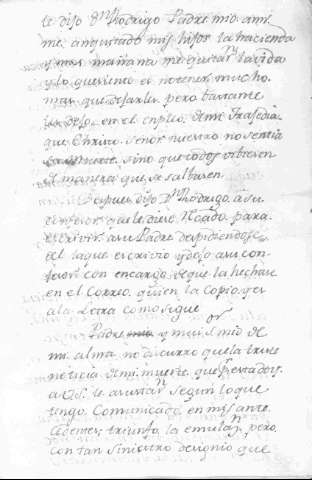 le dijo Dn Rodrigo Padre mio a mi
me angustado mis hijos la hacienda
y mas mañana me quitaran la vida
y lo que siento es no tener mucho
mas que dejarles pero bastante
les dejo en el de mi Trajedia
que Christo Señor nuestro no sentia
su muerte sino que todos vibiesen
de manera que se salbasen
Despues dijo Dn Rodrigo a su
confesor que le diese Recado para
escrivir a su Padre despidiendose
de el la que escrivio y dejo a su con-
fesor con encargo de que la hechase
en el Correo, quien la Copio, y es
a la Letra como sigue
Padre y muy Sr mio de
mi alma no discurro que la triste
noticia de mi muerte que prestados
a Ds le asustara segun lo que
tengo Comunicado en mis ante-
cedentes triunfo la emulazn pero
con tan siniestro designio que